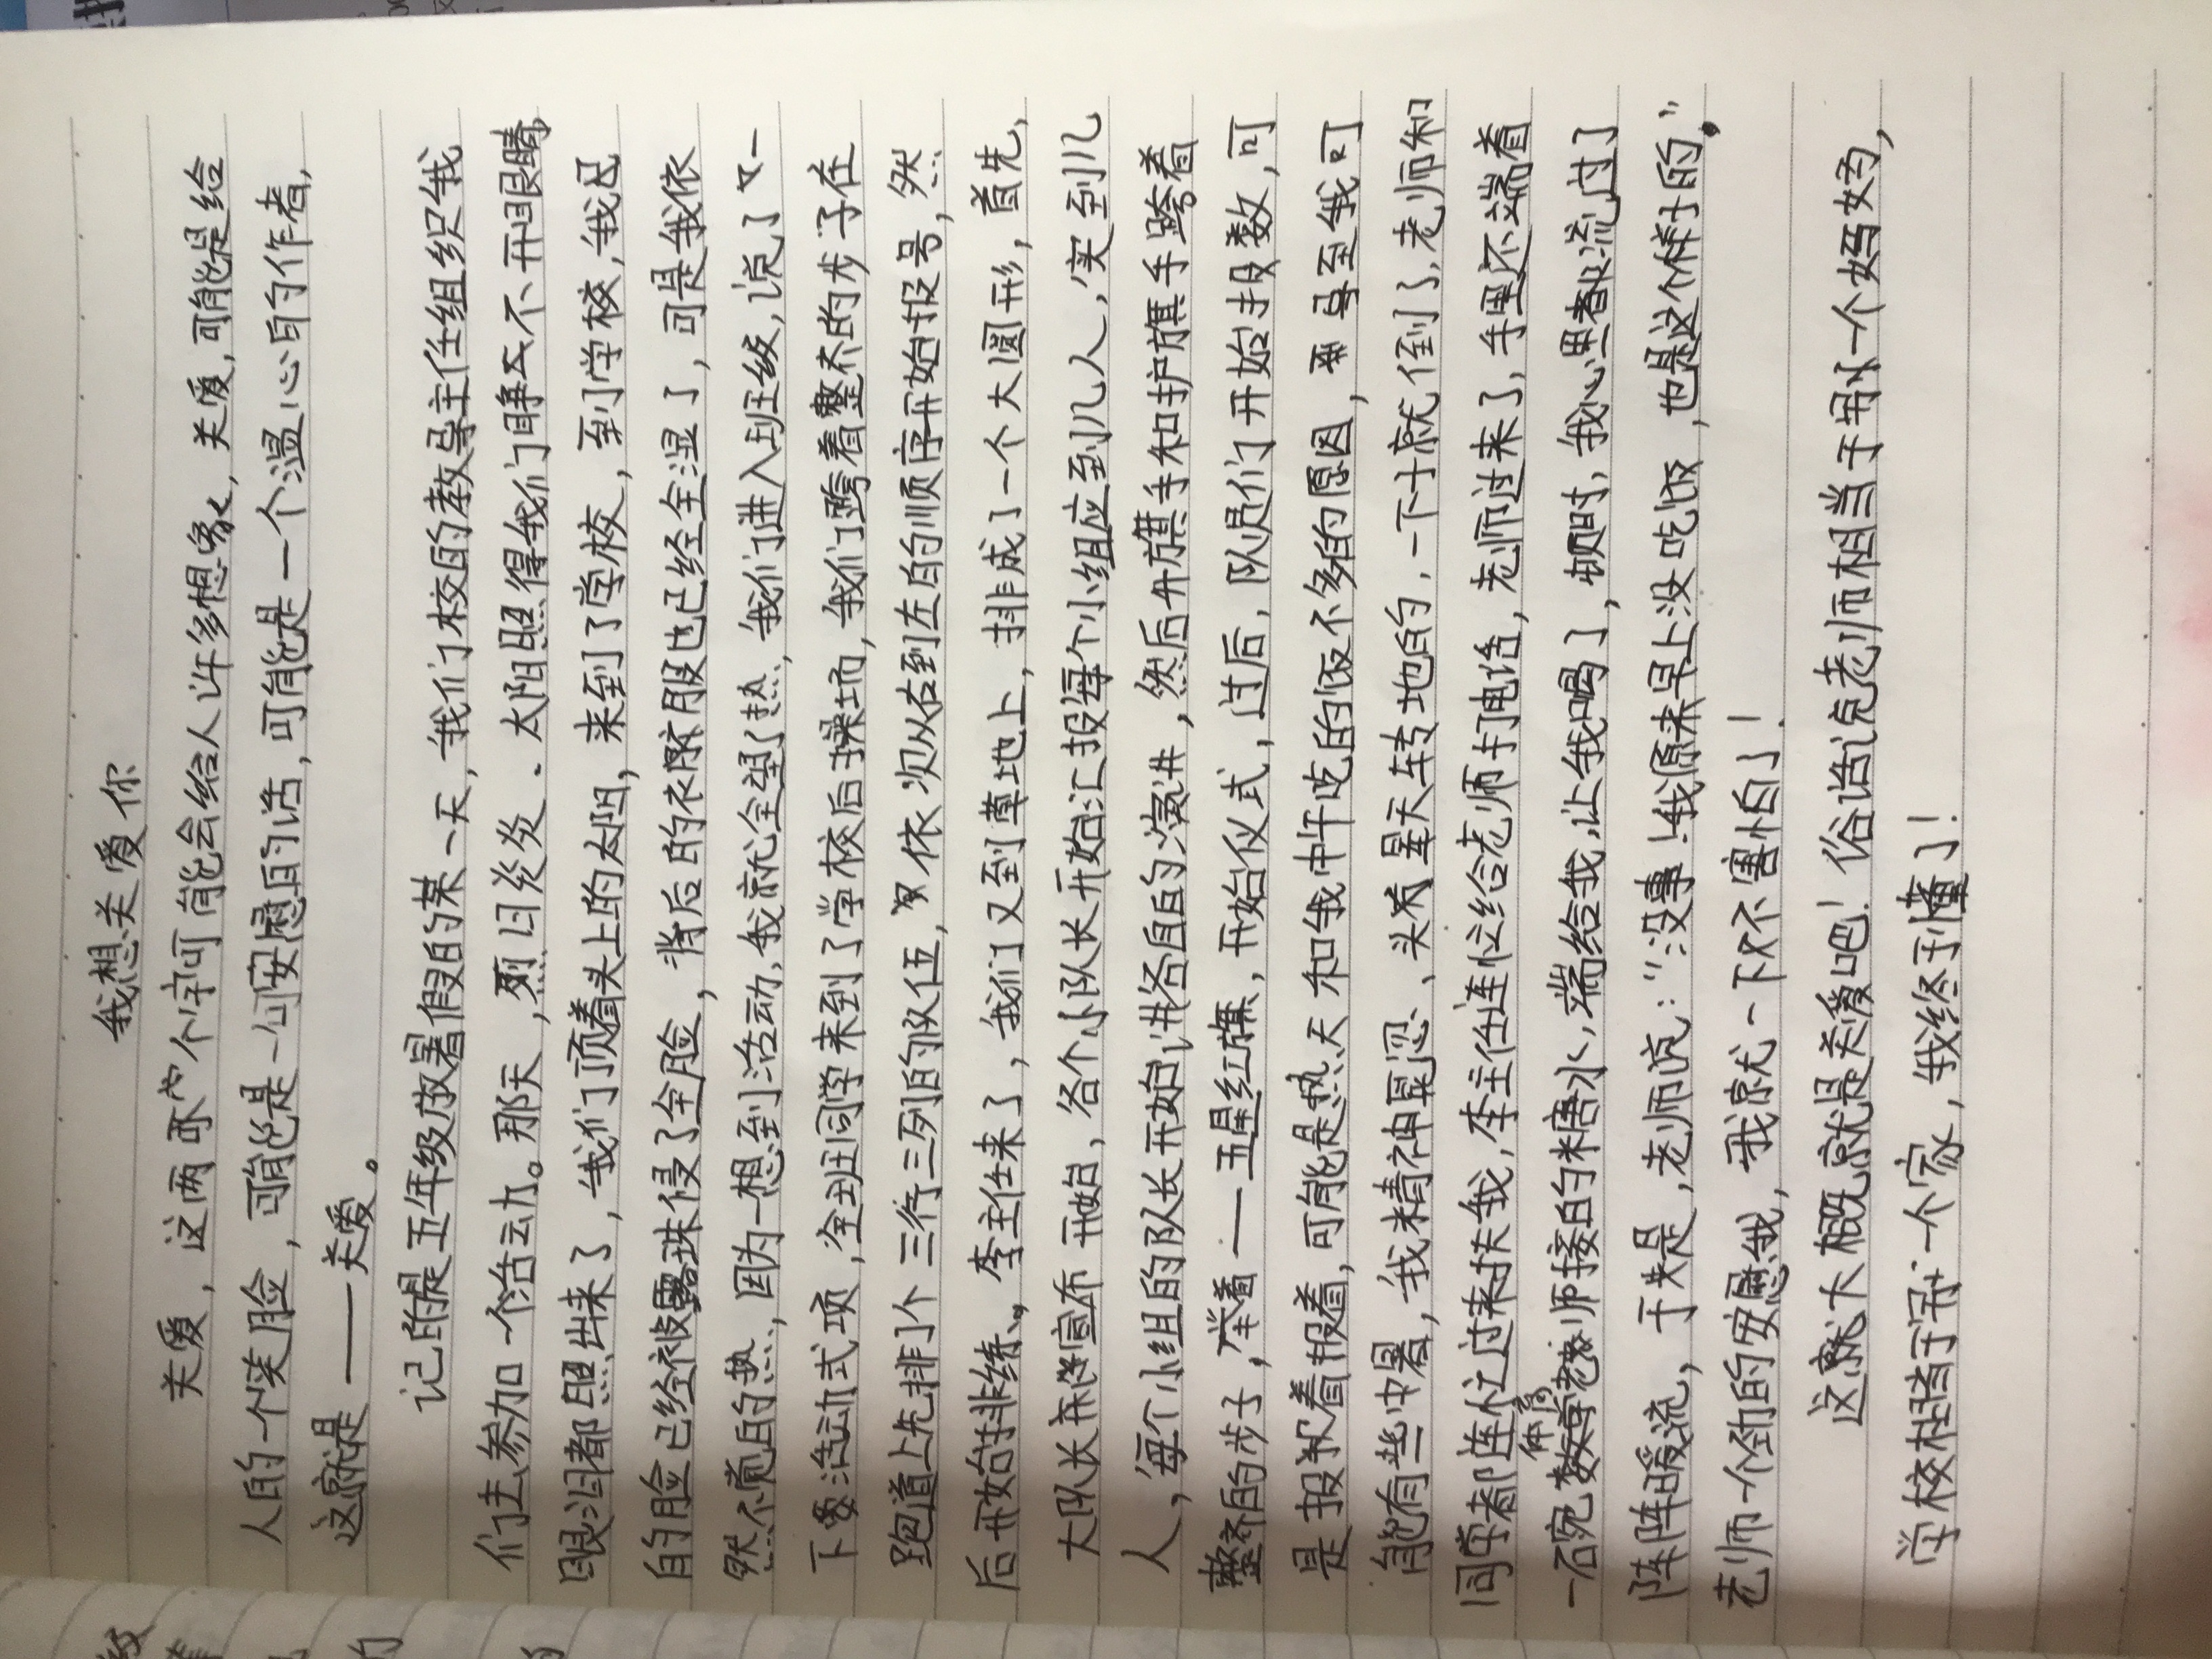 我想关爱你
关爱，这两个字可能会给人许多想象，关爱，可能是给
人的一个笑脸，可能是一句安慰的话，可能是一个温心的作者，
这就是——关爱。
记的是五年级放暑假的某一天，我们校的教导主任组织我
们去参加一个活动。那天，烈日炎炎、太阳照得我们睁不开眼睛，
眼泪都照出来了，我们顶着头上的太阳，来到了学校，到学校，我
的脸已经被露珠侵了全脸，背后的衣服也已经全湿了，可是我依
然不觉的热，因为一想到活动，我就全望了热，我们进入班级，说了一
下活动式项，全班同学来到了学校后操场，我们跨着整齐的步子在
跑道上先排1个三行三列的队伍，依次从右到左的顺序开始报号，然
后开始排练。李主任来了，我们又到草地上，排成了一个大圆形，首先，
大队长宣布开始，各个小队长开始汇报每个小组应到几人，实到几
人，每个小组的队长开始讲各自的演讲，然后升旗手和护旗手跨着
整齐的步子，举着——五星红旗，开始仪式，过后，队员们开始报数，可
是报着报着，可能是热天和我中午吃的饭不多的原因，导至我可
能有些中暑，我精神晃忽、头晕天转地的，一下子就倒了，老师和
同学都连忙过来扶我，李主任连忙给老师打电话，老师过来了，手里还端着
一碗体育老师接的糖水，端给我，让我喝了，顿时，我心里都流过了
阵阵暖流，于是，老师说：“没事！我原来早上没吃饭，也是这个样子的”。
老师一个劲的安慰我，我就一下不害怕了！
这就大概就是关爱吧！俗话说老师相当于另一个妈妈，
学校相当于另一个家，我终于懂了！